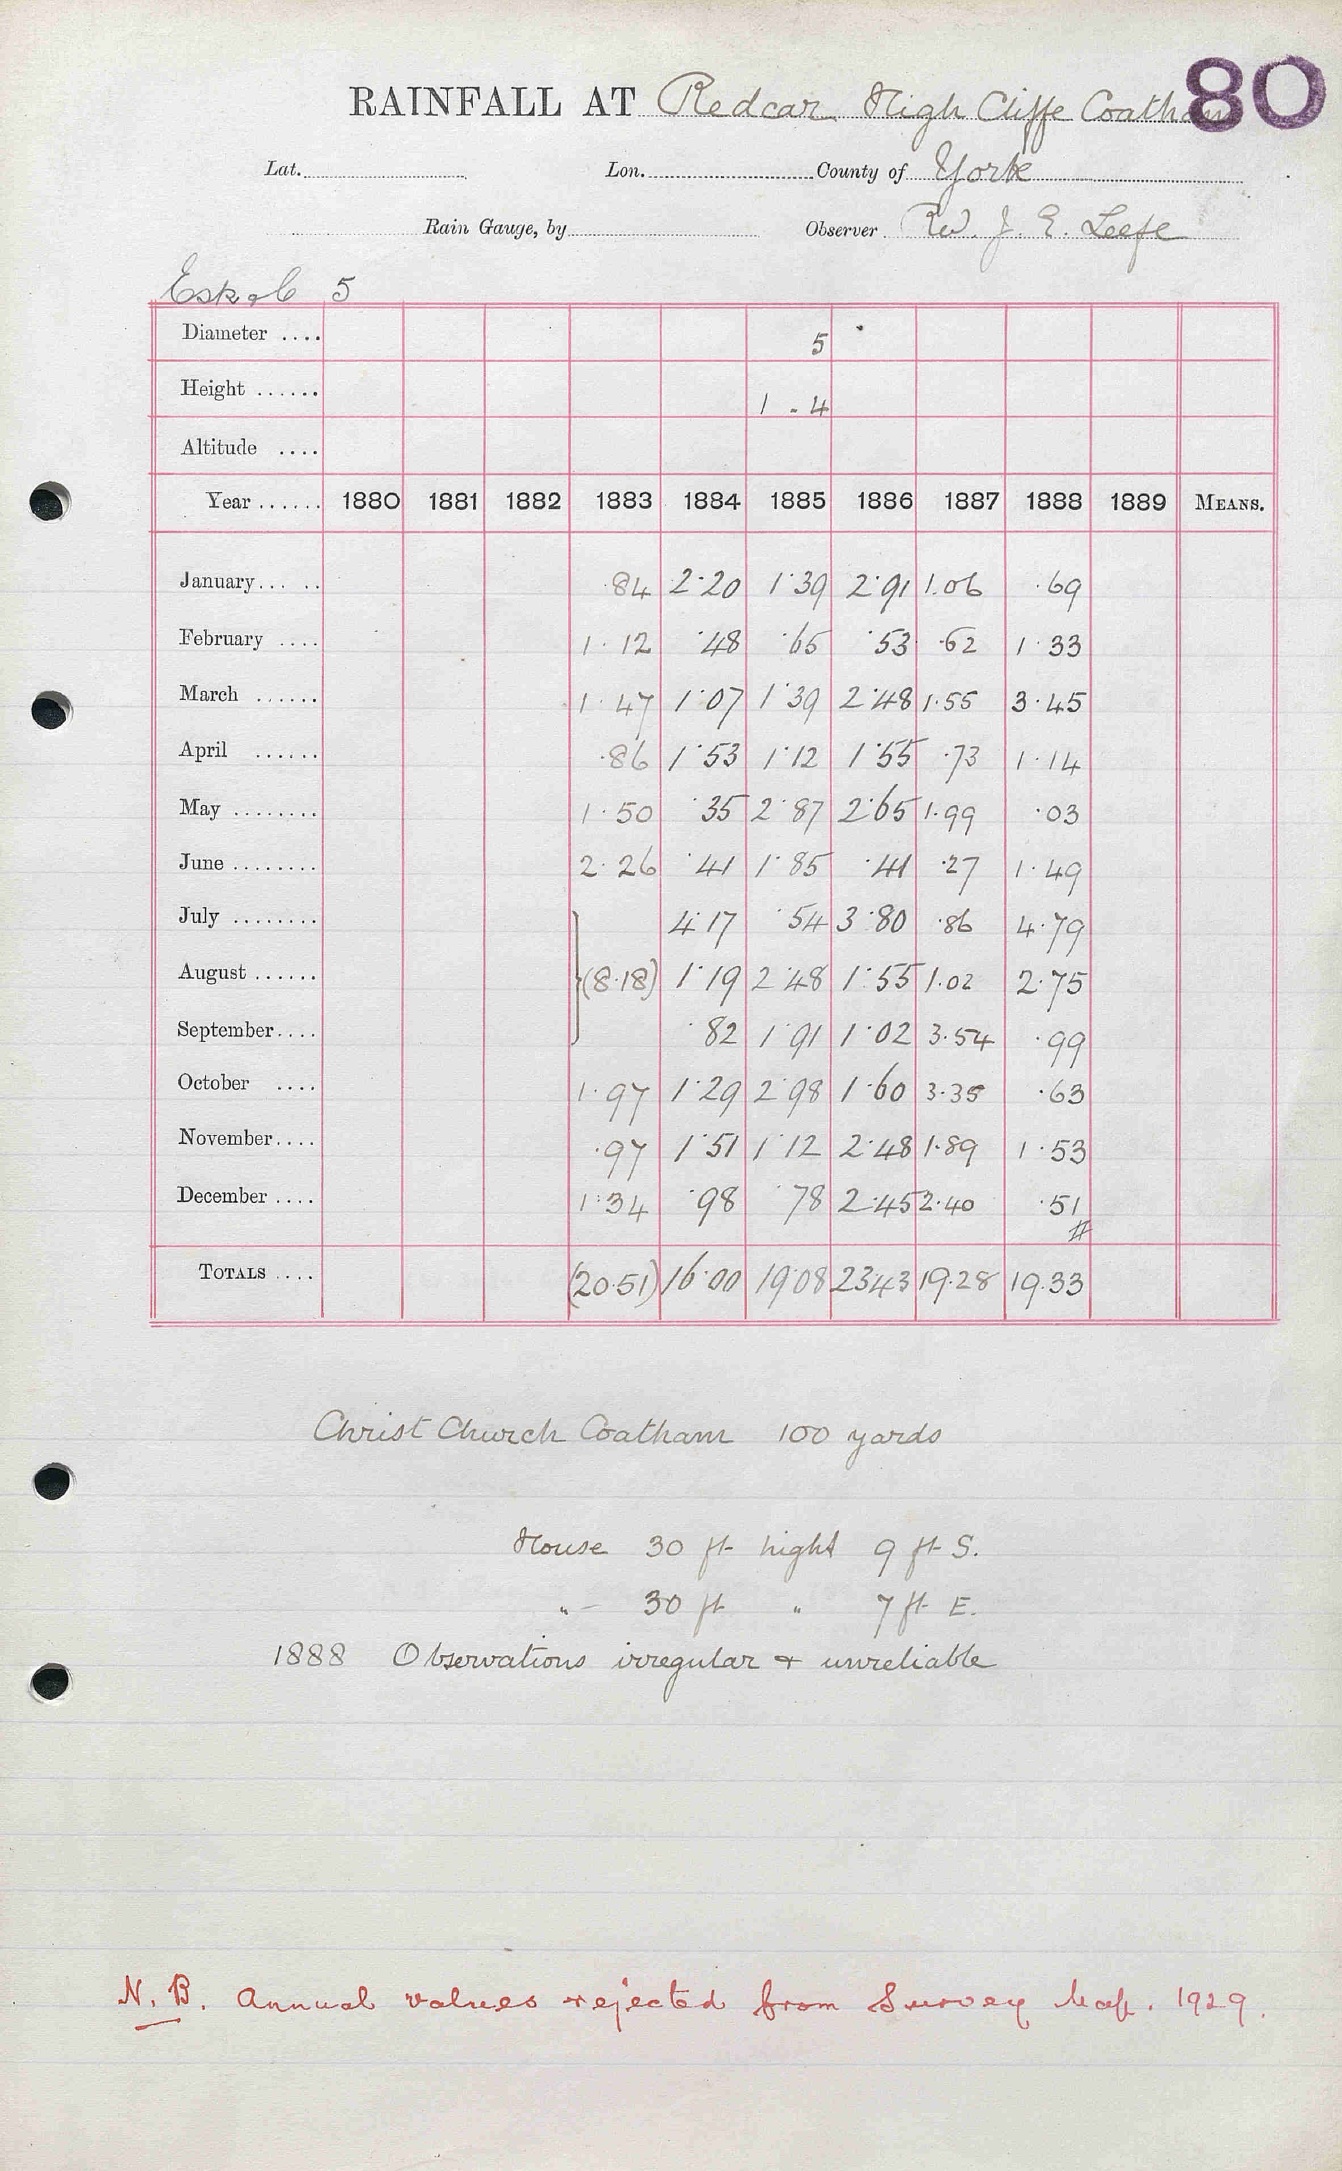 80
RAINFALL AT Redcar High Cliffe Coatham
Lat. Lon. County of York
Rain Gauge, by Observer Rev. J. E. Leefe
Esk &c 5
Diameter .... 5
Height ...... 1 - 4
Altitude ....
Year ...... 1880 1881 1882 1883 1884 1885 1886 1887 1888 1889 MEANS.
January ... .. ·84 2·20 1·39 2·91 1.06 ·69
February .... 1·12 ·48 ·65 ·53 ·62 1·33
March ...... 1·47 1·07 1·39 2·48 1.55 3·45
April ...... ·86 1·53 1·12 1·55 ·73 1·14
May ........ 1·50 ·35 2·87 2·65 1.99 ·03
June ........ 2·26 ·41 1·85 ·41 ·27 1·49
July ........ 4·17 ·54 3·80 ·86 4·79
August ...... (8·18) 1·19 2·48 1·55 1.02 2·75
September .... ·82 1·91 1·02 3·54 ·99
October .... 1·97 1·29 2·98 1·60 3·35 ·63
November .... ·97 1·51 1·12 2·48 1·89 1·53
December .... 1·34 ·98 ·78 2·45 2·40 ·51
#
TOTALS .... (20·51) 16·00 19·08 2343 19·28 19.33
Christ Church Coatham 100 yards
House 30 ft hight 9 ft S.
" - 30 ft " 7 ft E.
1888 Observations irregular & unreliable
N.B. Annual values rejected from Survey Map. 1929.